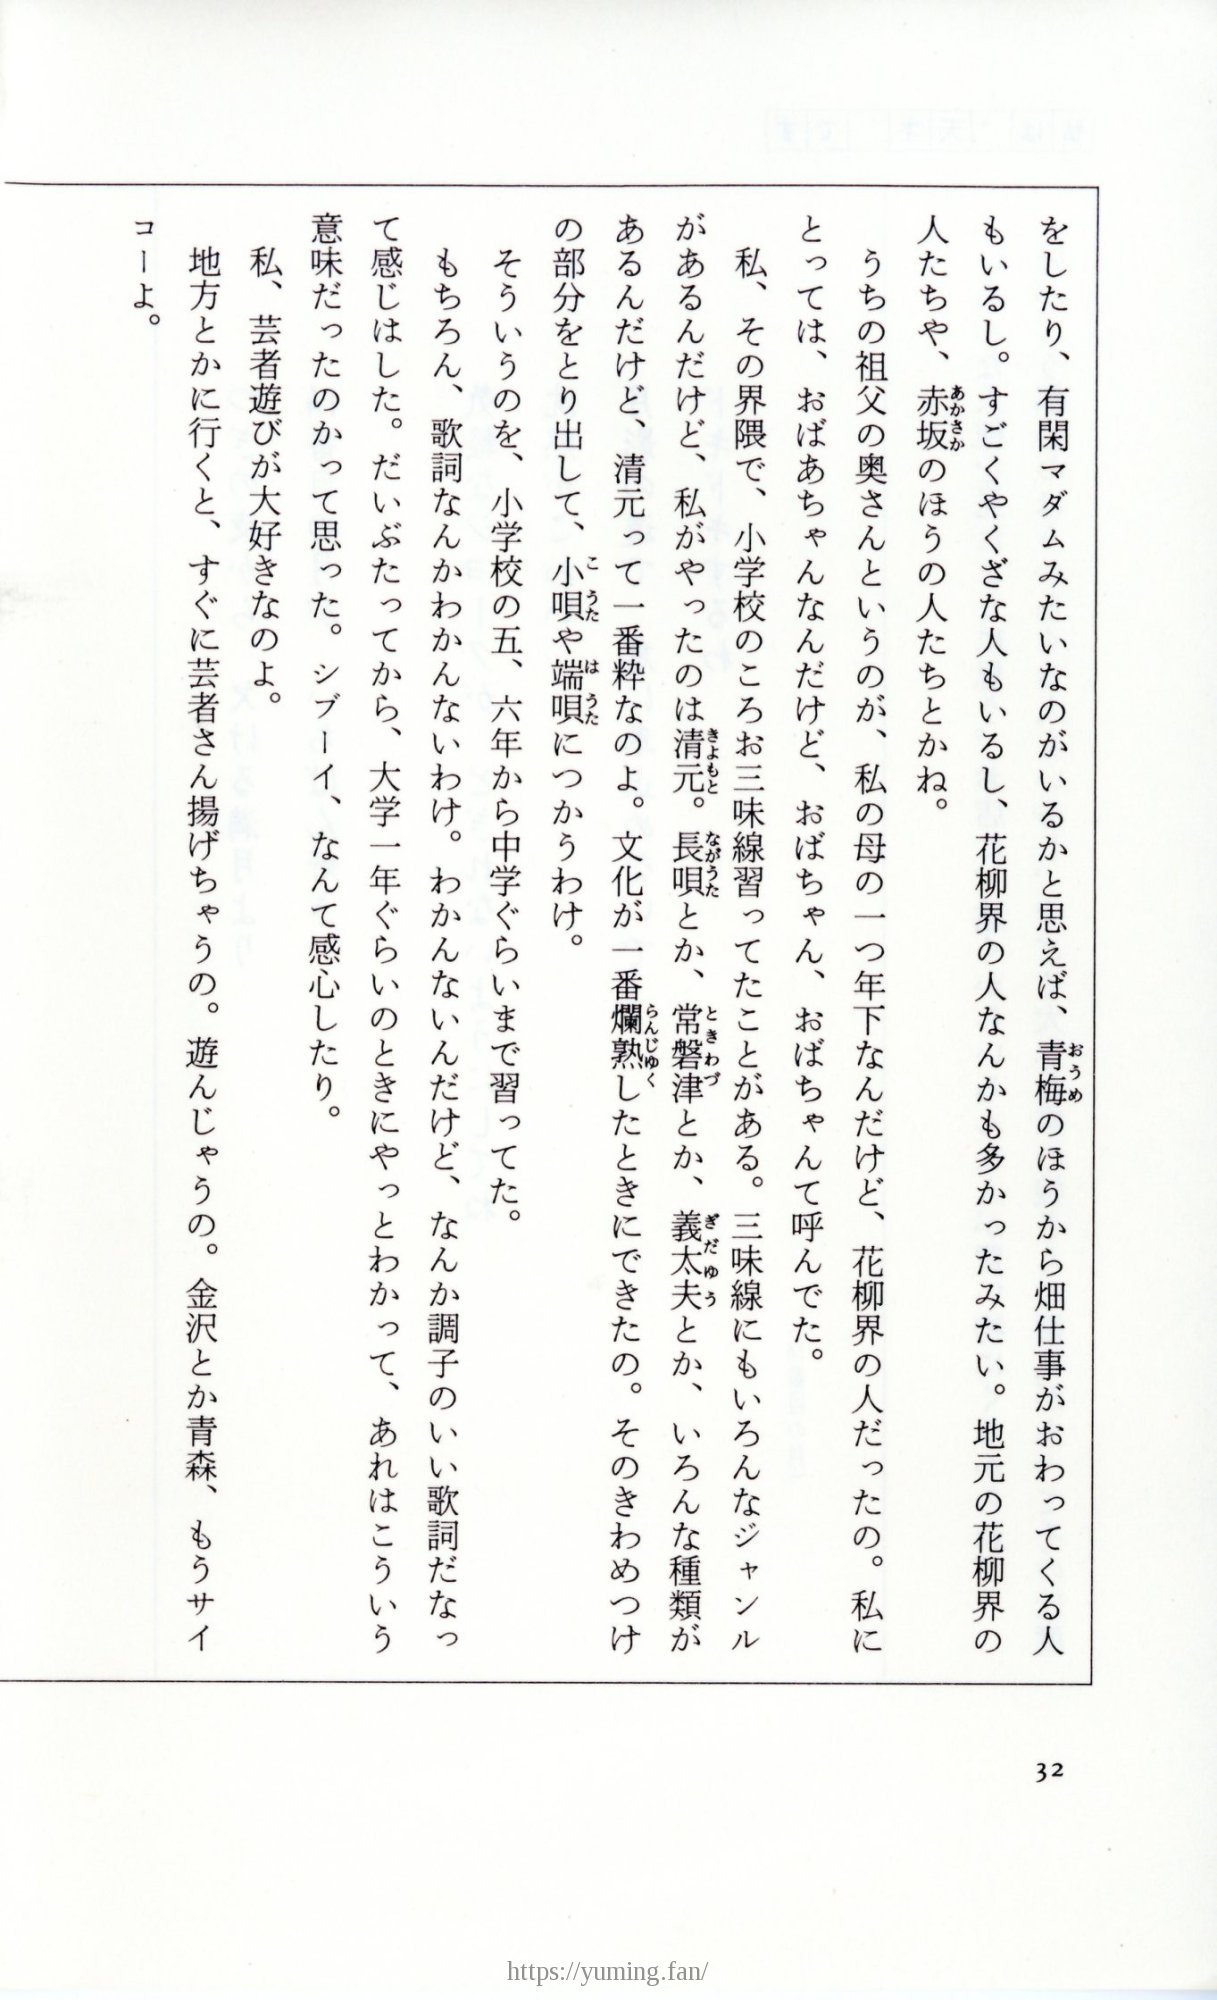 をしたり、有閑マダムみたいなのがいるかと思えば、青梅のほうから畑仕事がおわってくる人
もいるし。すごくやくざな人もいるし、花柳界の人なんかも多かったみたい。地元の花柳界の
人たちや、赤坂のほうの人たちとかね。
うちの祖父の奥さんというのが、私の母の一つ年下なんだけど、花柳界の人だったの。私に
とっては、おばあちゃんなんだけど、おばちゃん、おばちゃんて呼んでた。
私、その界隈で、小学校のころお三味線習ってたことがある。三味線にもいろんなジャンル
があるんだけど、私がやったのは清元。長唄とか、常磐津とか、義太夫とか、いろんな種類が
あるんだけど、清元って一番粋なのよ。文化が一番爛熟したときにできたの。そのきわめつけ
の部分をとり出して、小唄や端唄につかうわけ。
そういうのを、小学校の五、六年から中学ぐらいまで習ってた。
もちろん、歌詞なんかわかんないわけ。わかんないんだけど、なんか調子のいい歌詞だなっ
て感じはした。だいぶたってから、大学一年ぐらいのときにやっとわかって、あれはこういう
意味だったのかって思った。シブーイ、なんて感心したり。
私、芸者遊びが大好きなのよ。
地方とかに行くと、すぐに芸者さん揚げちゃうの。遊んじゃうの。金沢とか青森、もうサイ
コーよ。
32
https://yuming.fan/